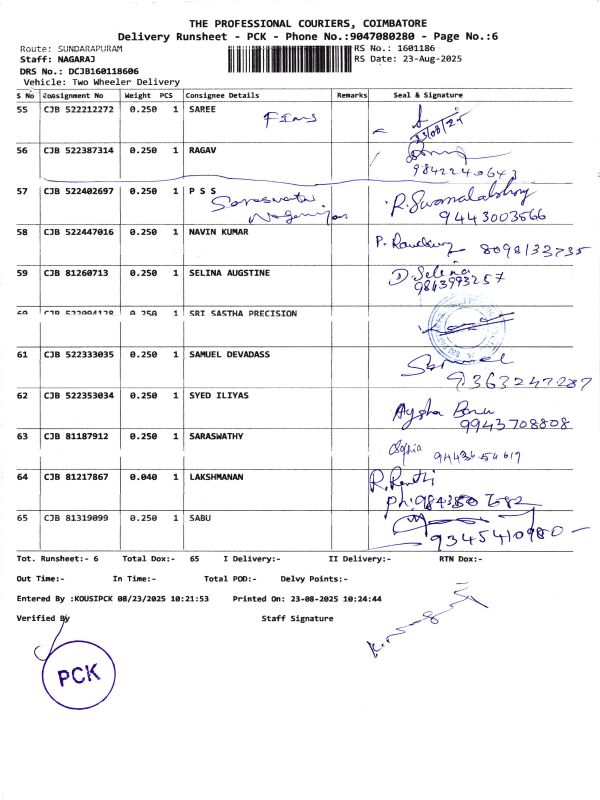 THE PROFESSIONAL COURIERS, COIMBATORE
Delivery Runsheet - PCK - Phone No.:9047080280 - Page No.:6
Route: SUNDARAPURAM RS No.: 1601186
Staff: NAGARAJ RS Date: 23-Aug-2025
DRS No.: DCJB160118606
Vehicle: Two Wheeler Delivery
S No Consignment No Weight PCS Consignee Details Remarks Seal & Signature
55 CJB 522212272 0.250 1 SAREE
23/08/25
56 CJB 522387314 0.250 1 RAGAV
9842240643
57 CJB 522402697 0.250 1 P S S
Saraswathi
9443003566
58 CJB 522447016 0.250 1 NAVIN KUMAR 8098133735
59 CJB 81260713 0.250 1 SELINA AUGSTINE D. Selena
9843993257
60 CJB 522004128 0.250 1 SRI SASTHA PRECISION
61 CJB 522333035 0.250 1 SAMUEL DEVADASS
9363247287
62 CJB 522353034 0.250 1 SYED ILIYAS Aysha Banu
9943708808
63 CJB 81187912 0.250 1 SARASWATHY
64 CJB 81217867 0.040 1 LAKSHMANAN
65 CJB 81319099 0.250 1 SABU
9345410980
Tot. Runsheet:- 6 Total Dox:- 65 I Delivery:- II Delivery:- RTN Dox:-
Out Time:- In Time:- Total POD:- Delvy Points:-
Entered By :KOUSIPCK 08/23/2025 10:21:53 Printed On: 23-08-2025 10:24:44
Verified By Staff Signature
PCK